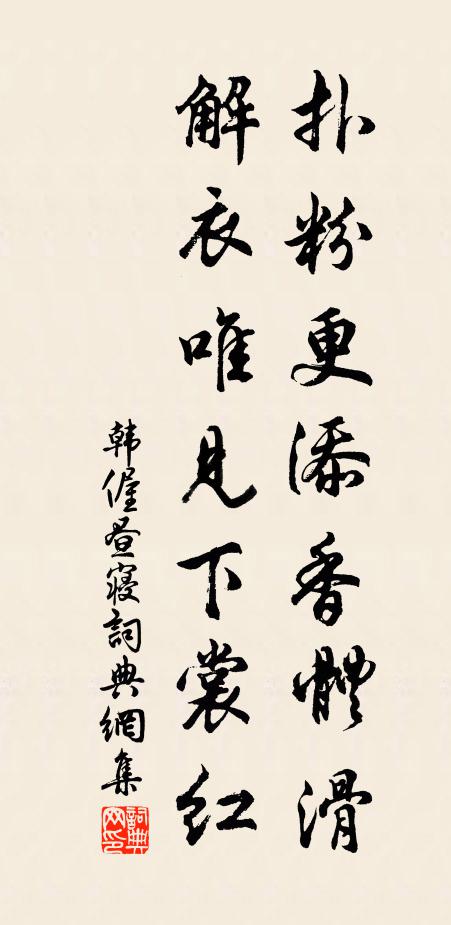 扑粉更添香體滑
解衣唯見下裳紅
韓偓晝寢詞典網集
詞典網印